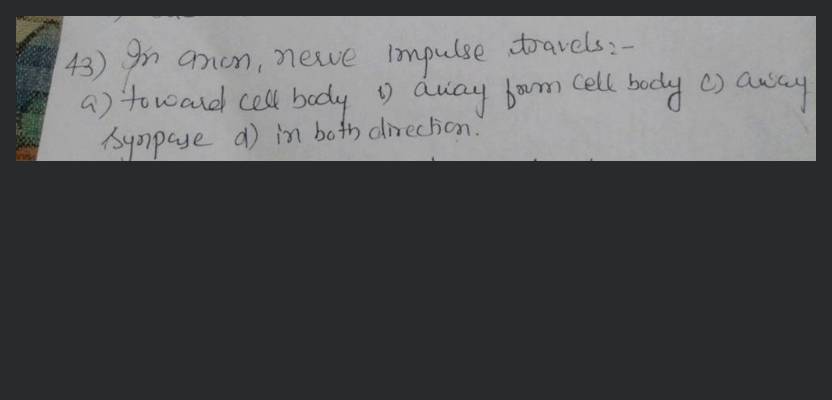 43) In axon, nerve impulse travels:-
a) toward cell body b) away from cell body c) away
synpase d) in both direction.